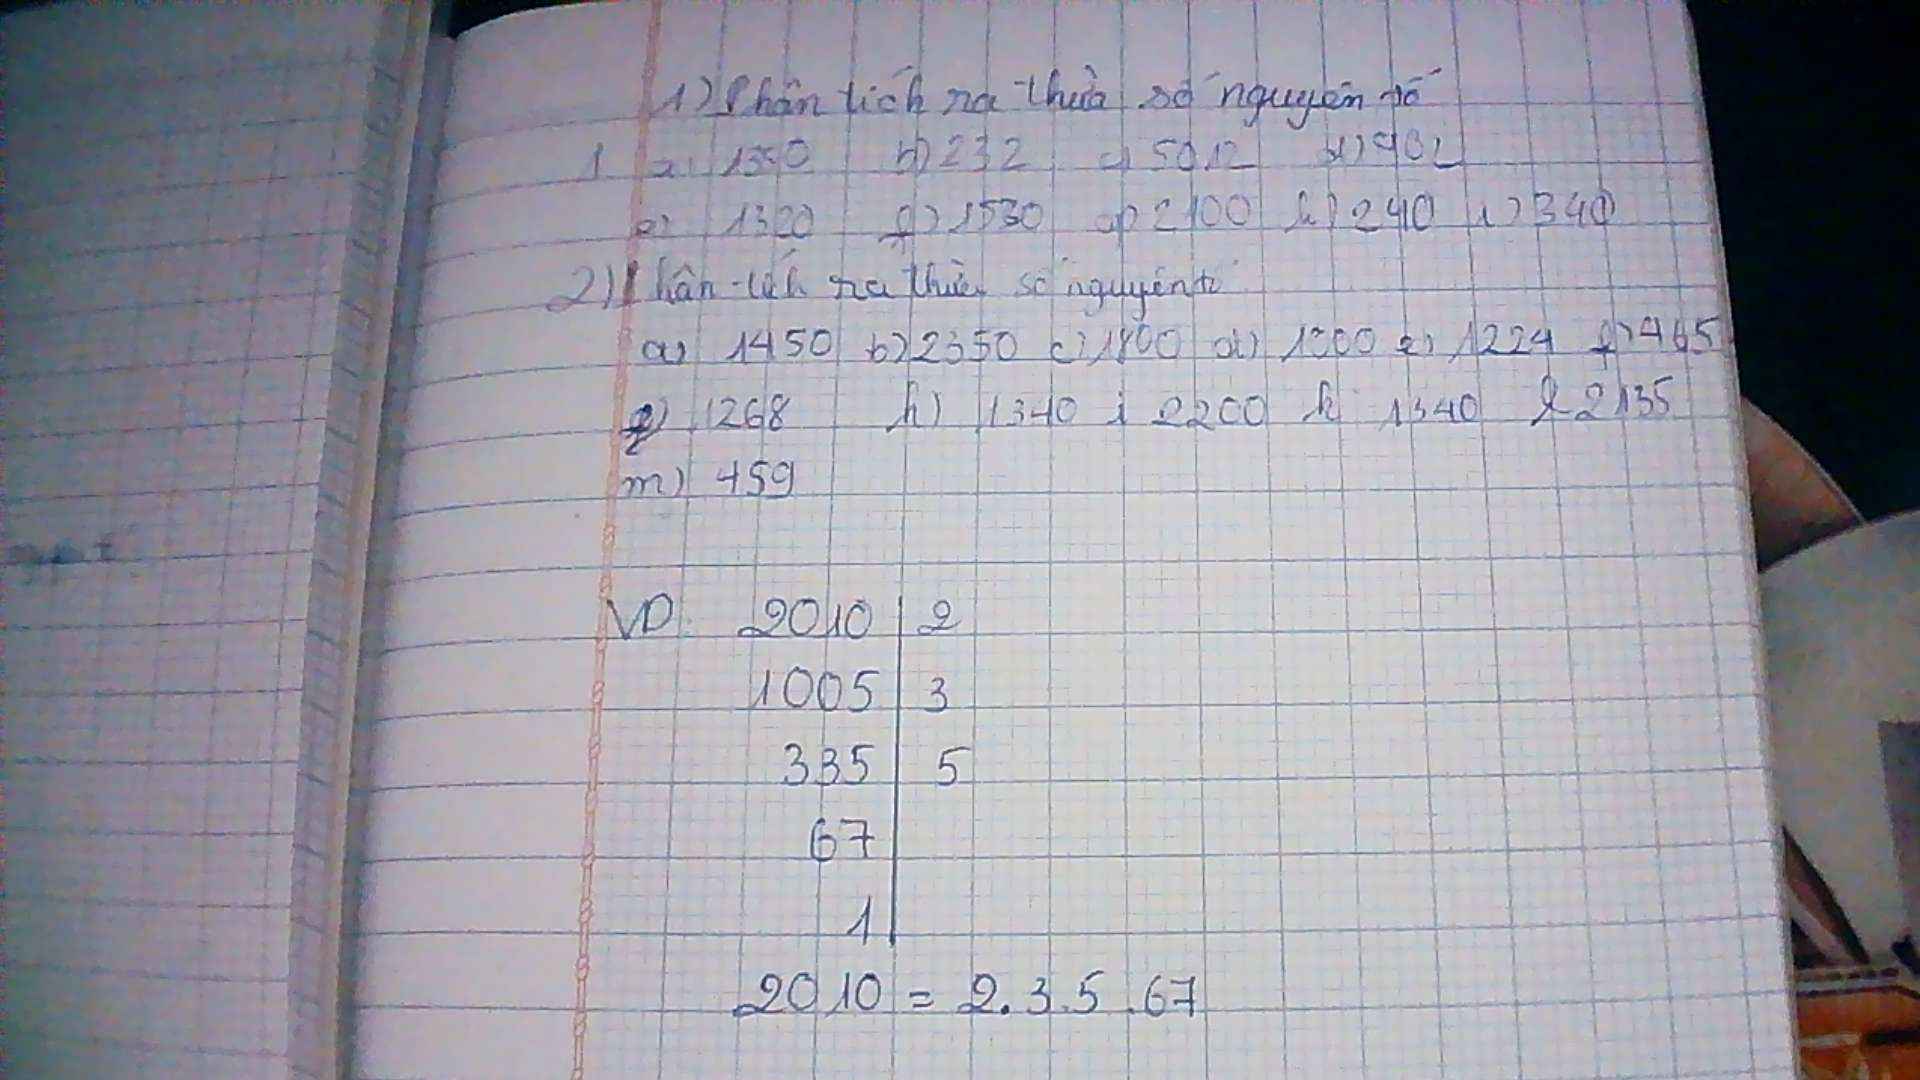 1) Phân tích ra thừa số nguyên tố
1 a) 1350 b) 232 c) 5012 d) 902
e) 1320 f) 1530 g) 2100 h) 240 i) 340
2) Phân tích ra thừa số nguyên tố
a) 1450 b) 2350 c) 1800 d) 1200 e) 1224 f) 465
g) 1268 h) 1340 i 2200 k 1340 l 2135
m) 459
VD: 2010 | 2
1005 | 3
335 | 5
67
1
2010 = 2.3.5.67